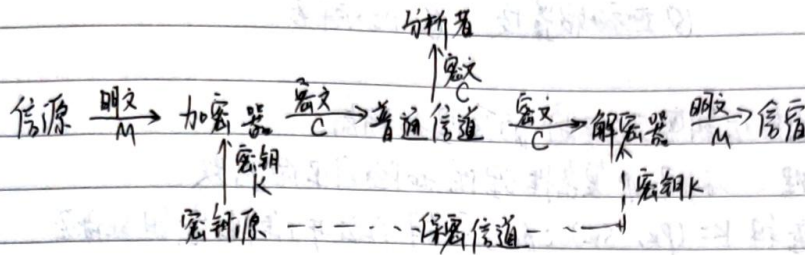 分析者
↑密文 C
信源 明文 M → 加密器 密文 C → 普通信道 密文 C → 解密器 明文 M → 信宿
↑密钥 K
密钥K
密钥源 ---- 保密信道 ----